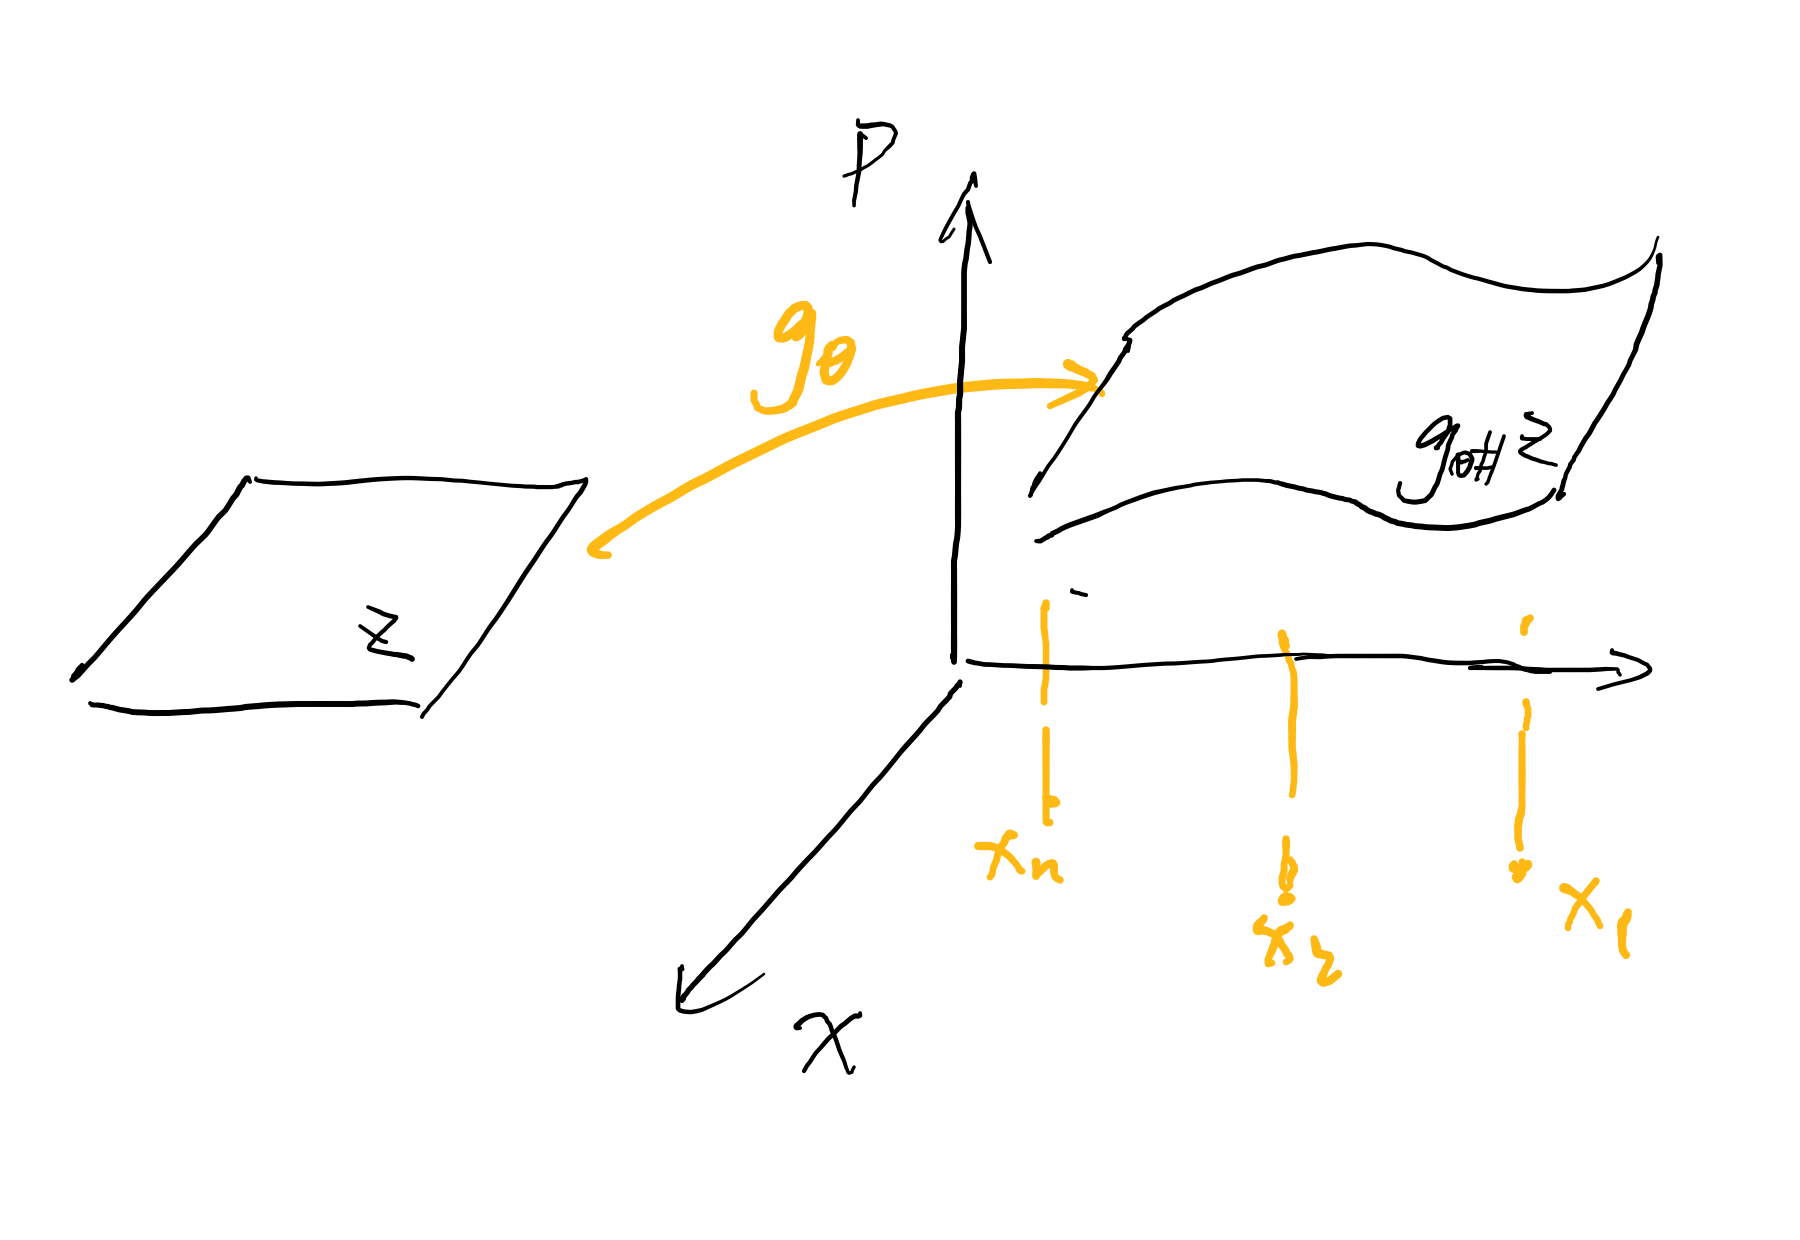 P
gθ
gθ# z
z
xn
x2
x1
x